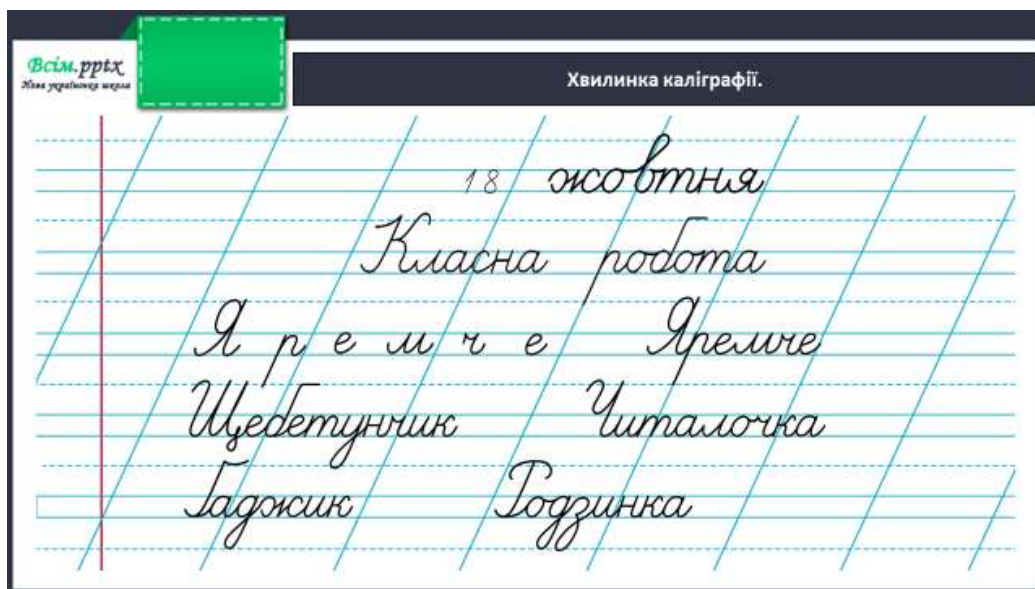 Всім.pptx
Нова українська школа
Хвилинка каліграфії.
18 жовтня
Класна робота
Я р е м ч е Яремче
Щебетунчик Читалочка
Ґаджик Родзинка